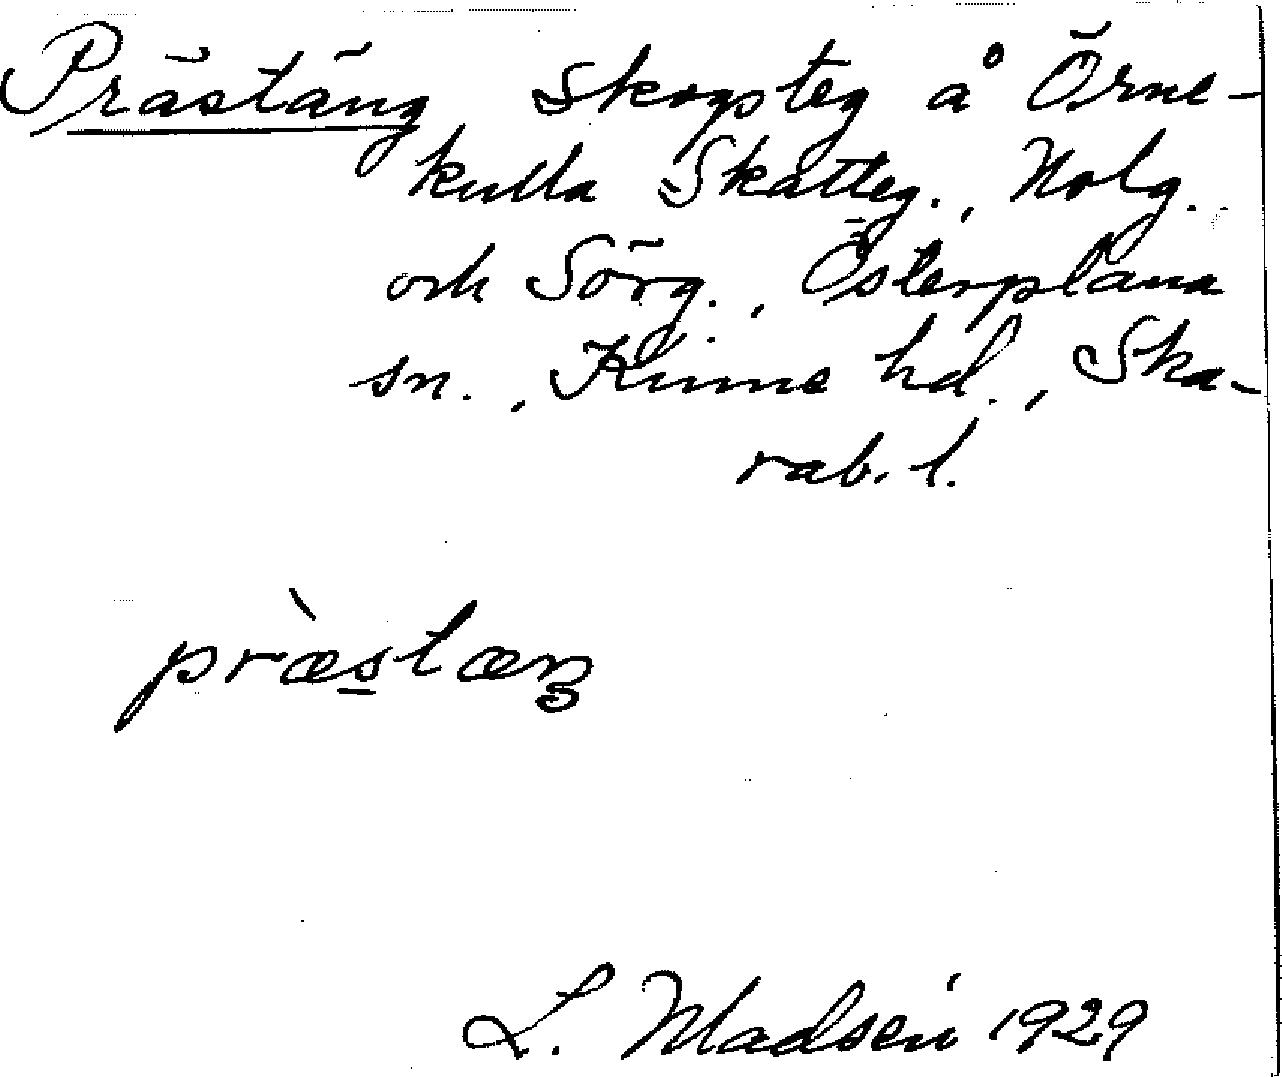 Prästäng Skogsteg å Örne-
kulla Skatteg., Nolg.
och Sörg., Österplana
sn., Kinne hd., Ska-
rab. l.
præ̀s̲tæŋ
L. Madsén 1929